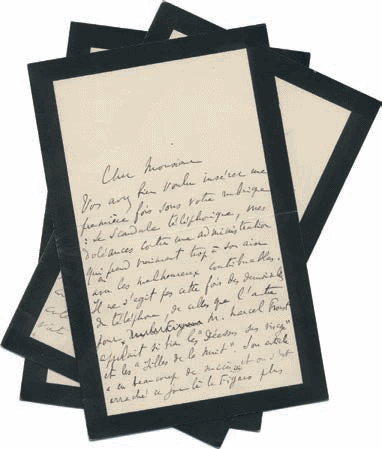 Cher Monsieur
Vous avez bien voulu insérer une
première fois sous votre rubrique
: le scandale téléphonique, mes
doléances contre une administration
qui prend vraiment trop à son aise
avec les malheureux contribuables.
Il ne s'agit pas cette fois des demoiselles
de téléphone, de celles que l'autre
jour, M. Marcel Proust
appelait si bien les "Déesses sans visage"
et les "Filles de la Nuit". Son article
a eu beaucoup de succès et on s'est
arraché ce jour là le Figaro plus